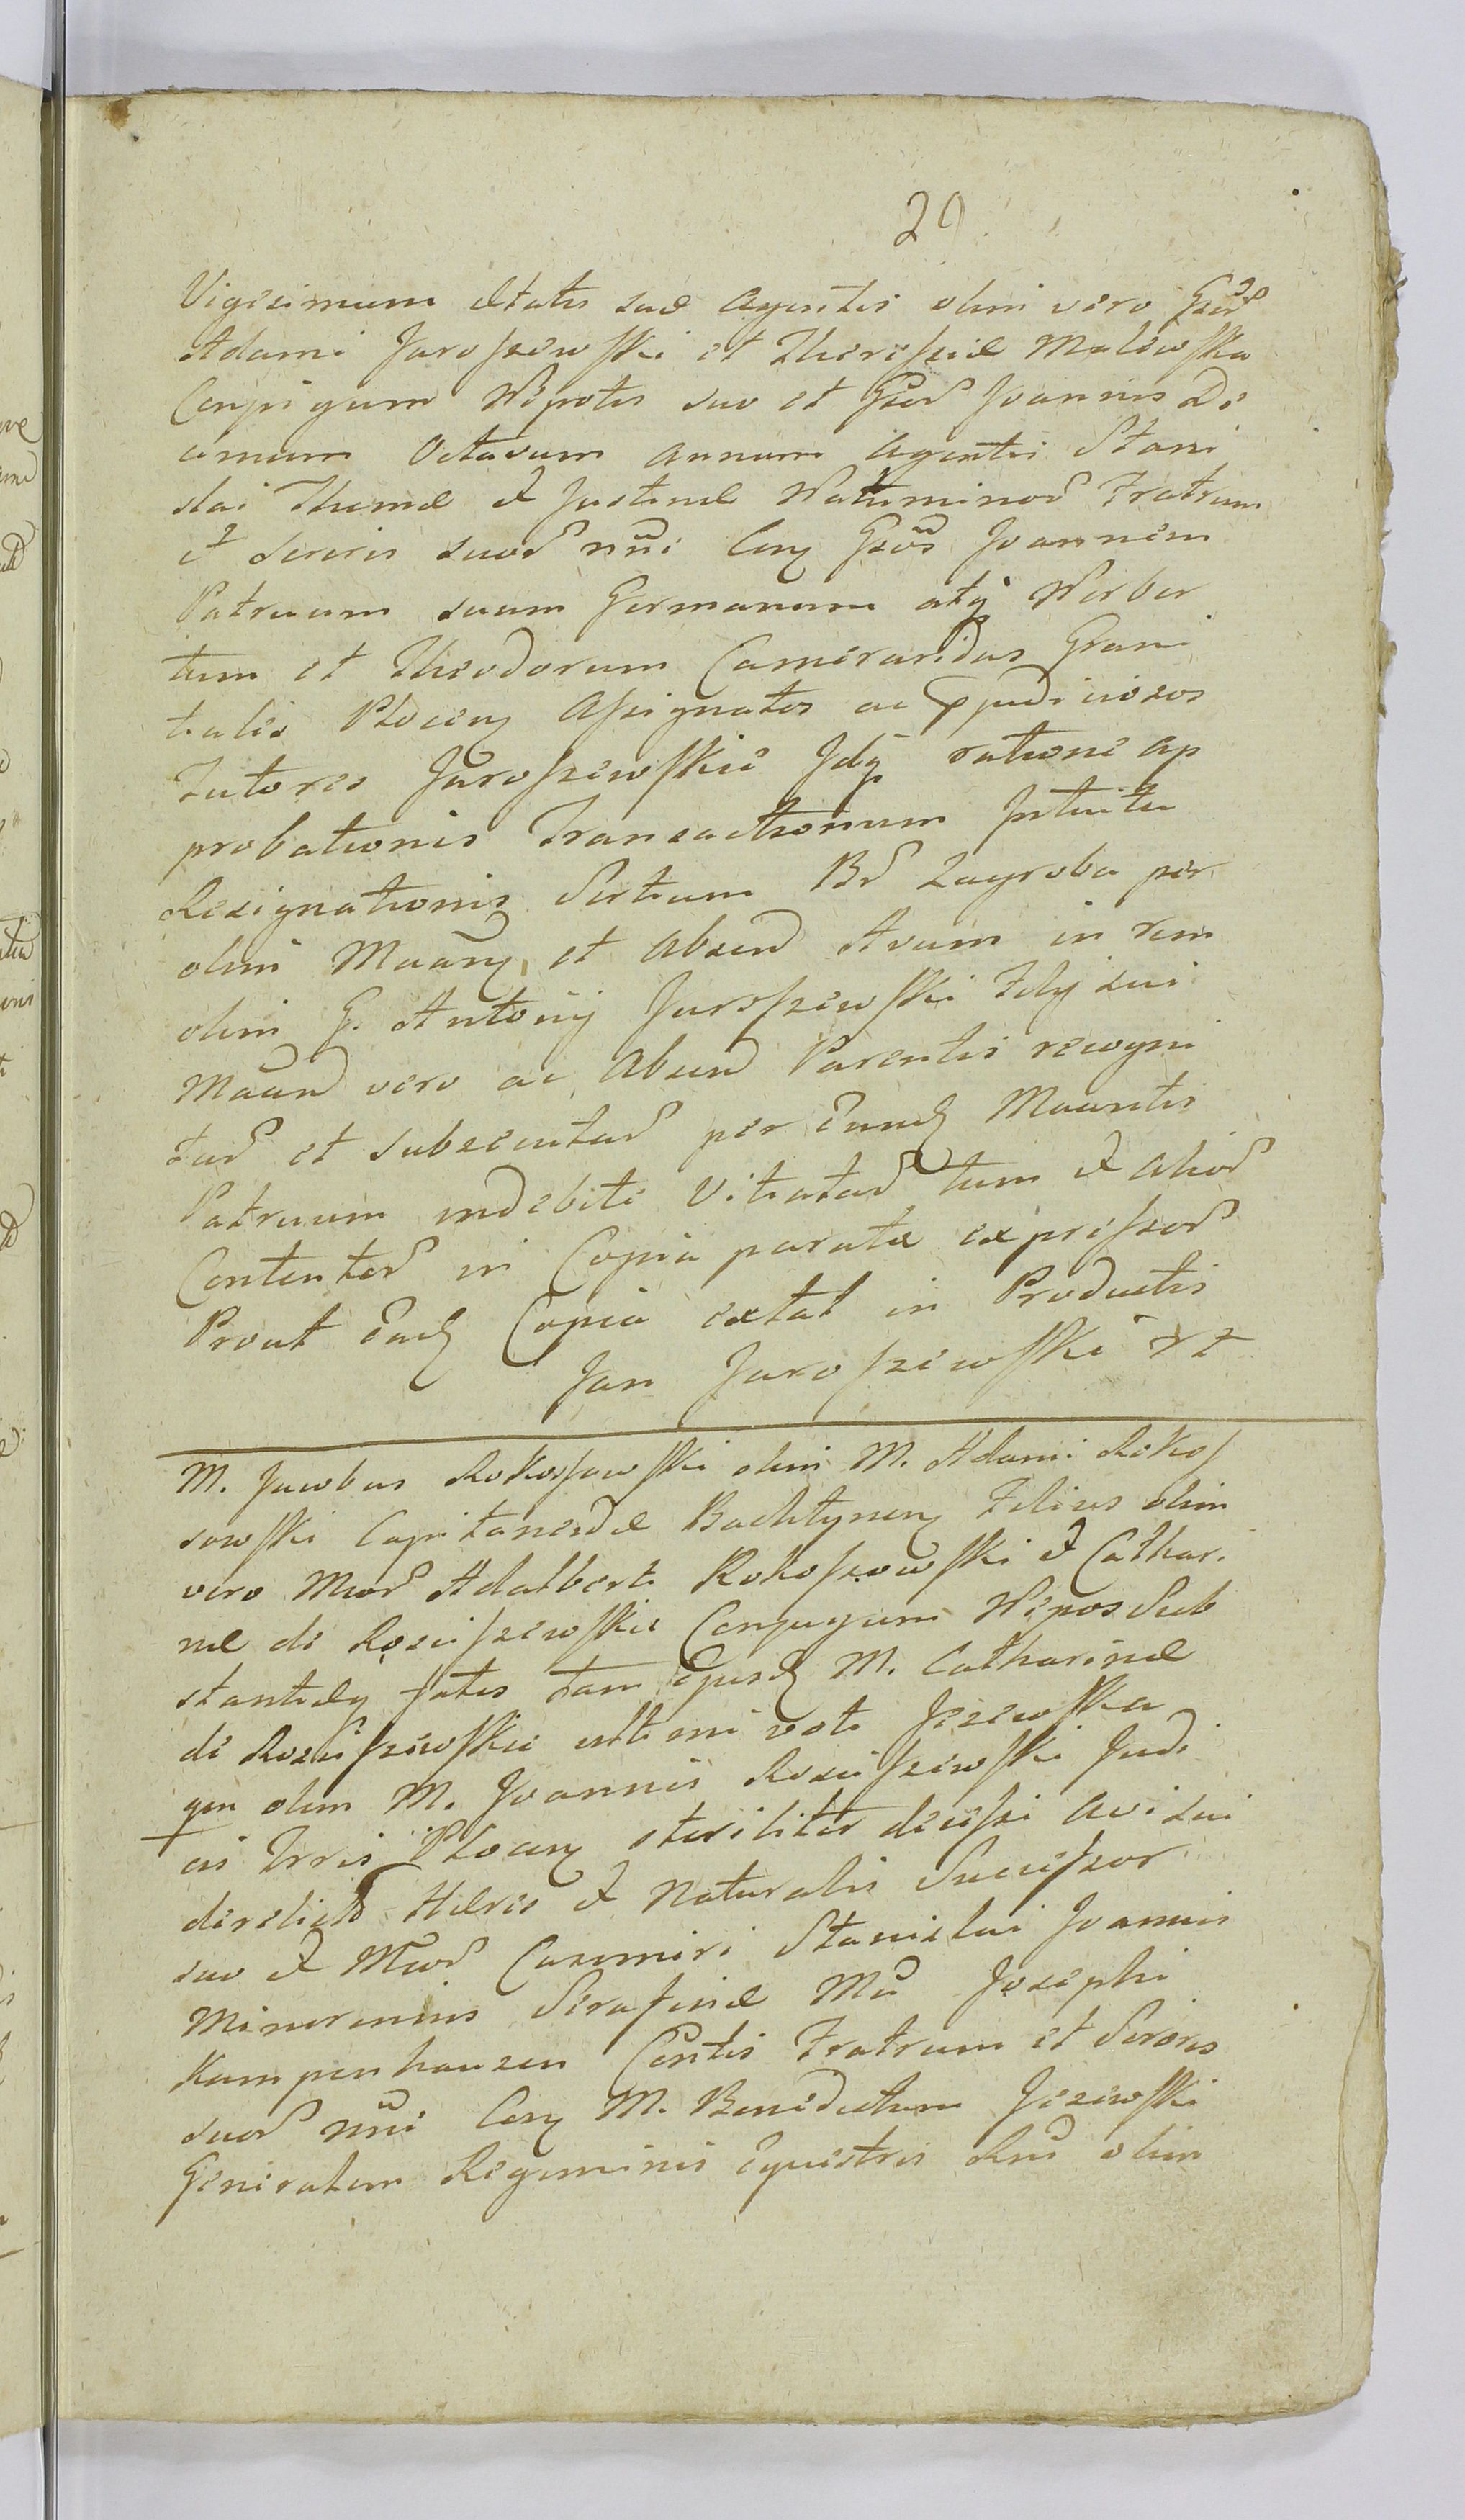 29
Vigesimum ætatis suæ agentis olim vero Gsor
Adami Jaroszewski et Theresiæ Malewska
Conjugum Nepotis suo et Gsor Joannis De
cimum Octavum annum agentis Stani
slai Thomæ et Justinæ Natuminor Fratrum
et Sororis suor nni Cony Gsos Joannem
Patruum suum Germanum atq Norber
tum et Theodorum Cameraridas Grani
tiales Plocen Assignatos ac
Tutores Jaroszewskie Idq ratione ap
probationis Transactionum Intuitu
Resignationis Sortium Br Zagroba per
olim et Absen Avum in rem
olim G. Antonij Jaroszewski Filij sui
vero ac Absen Parentis recogni
tar et subsecutar per Eund Maontis
Patruum indebite Vitiatar tum et alior
Contentor in Copia parata expressor
Prout Ead Copia extat in Productis
Jan Jaroszewski
M. Jacobus Rokossowski olim M. Adami Rokos
sowski Capitaneidæ Bachtynen Filius olim
vero Mcor Adalberti Rokoszowski et Cathari
næ de Rosciszewskie Conjugum Nepos Sub
stantialy fatis tam Ejusd M. Catharinæ
de Rosciszewskie ultimi voti Jezewska
qm olim M. Joannis Rosciszewski Judi
cis Trris Plocen steriliter decessi avi sui
derelict Hæres et Naturalis Successor
suo et Mcor Casimiri Stanislai Joannis
Minorennis Serafinæ Josephi
Kampenhausen Contis Fratrum et Sororis
suor nni Cony M. Benedictum Jezewski
Generalem Regiminis Equestris olim